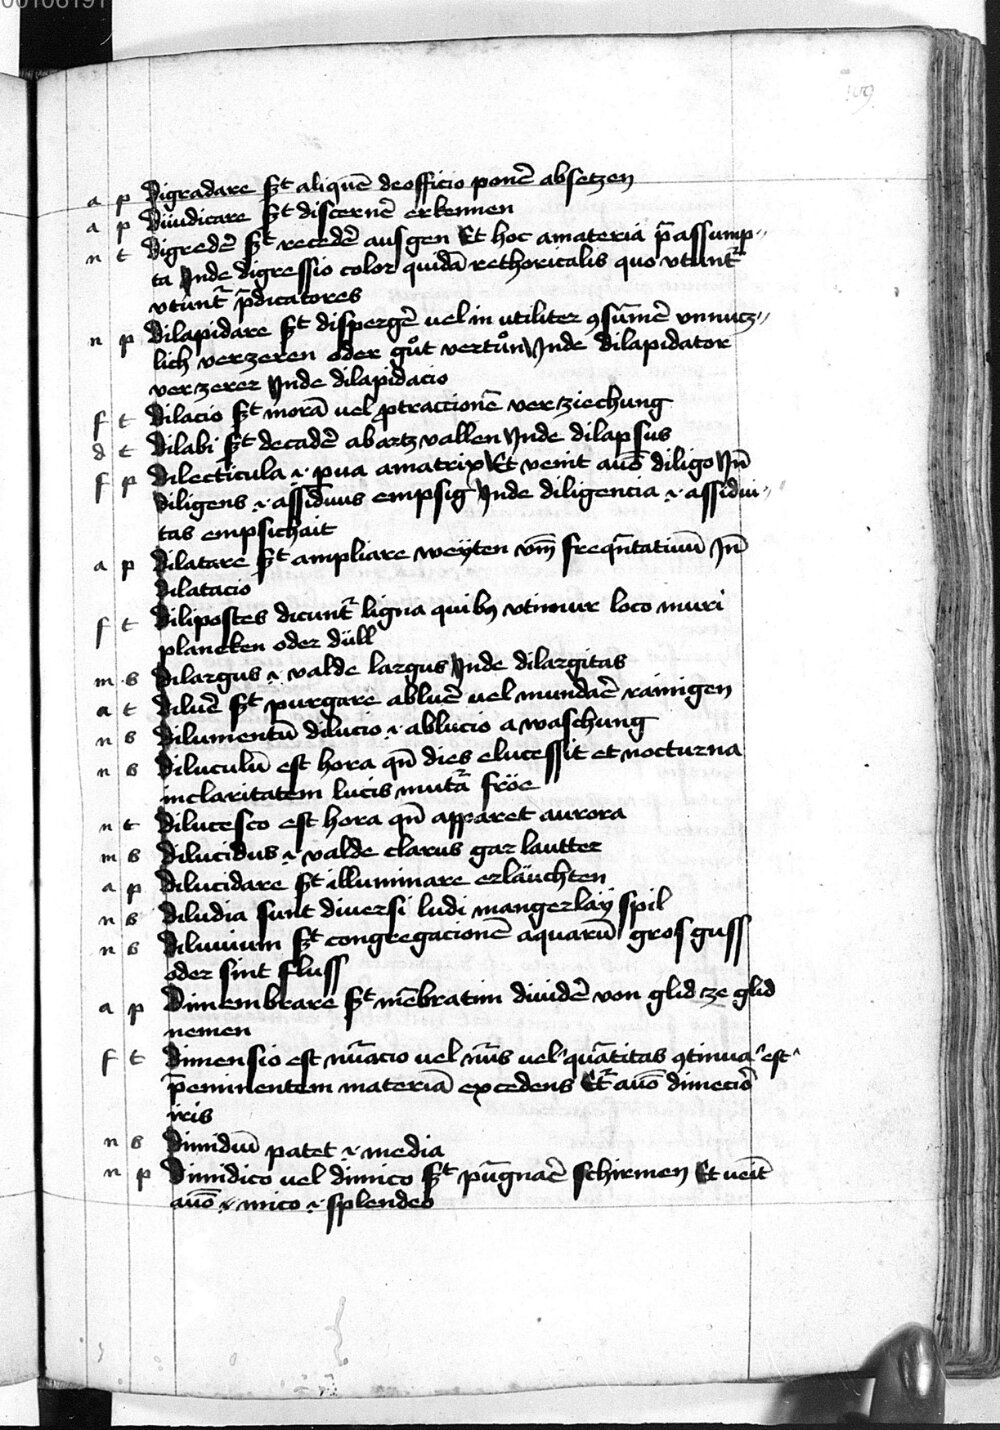 00106191
109
a p Digradare sꝫt aliquē de officio ponē absetzen
a p Diiudicare sꝫt discernē erkennen
n t Digredē sꝫt recedē aus gen Et hoc a materia p̄assump⸗
ta Jnde digressio color quidā rethoricalis quo vtunt᷑
vtunt᷑ p̄dicatores
n p Dilapidare sꝫt dispergē uel in utiliter ꝯsūmē vnnucz⸗
lich verzeren oder gůt vertůn Jnde dilapidator
verzerer Jnde dilapidacio
f t Dilacio sꝫt morā uel ꝓtraccionē verziechung
d t Dilabi sꝫt decadē abartz vallen Jnde dilapsus
f p Dilecticula .i. pua amatrix Et venit auō diligo Jn̄
Diligens .i. assiduus empsig Jnde diligencia .i. assidui⸗
tas empsichait
a p Dilatare sꝫt ampliare weÿten vn̄ freqn̄tatiuū Jn̄
dilatacio
f t Dilipostes dicunt᷑ ligna quibꝫ vtimur loco muri
plancken oder düll
m s Dilargus .i. valde largus Jnde dilargitas
a t Diluē sꝫt purgare abluē uel mundaē rainigen
n s Dilumentū dilucio .i. ablucio a waschung
n s Diluculū est hora qn̄ dies elucessit et nocturna
in claritatem lucis mutat᷑ fröe
n t Dilucesco est hora qn̄ apparet aurora
m s Dilucidus .i. valde clarus gar lautter
a p Dilucidare sꝫt illuminare erläuchten
n s Diludia sunt diuersi ludi mangerlaÿ spil
n s Diluuium sꝫt congregacionē aquarū gros guss
oder sint fluss
a p Dimembrare sꝫt mēbratim diuidē von glid ze glid
nemen
f t Dimensio est mr̄acio uel nūs uel quātitas ꝯtinua est
p̄eminentem materiā excedens Et᷑ auō dimecio᷑
iris
n s Dimidiū patet .i. media
n p Dimidico uel dimico sꝫt pūgnaē schirmen Et ueīt
auō .i. mico .i. splendeo